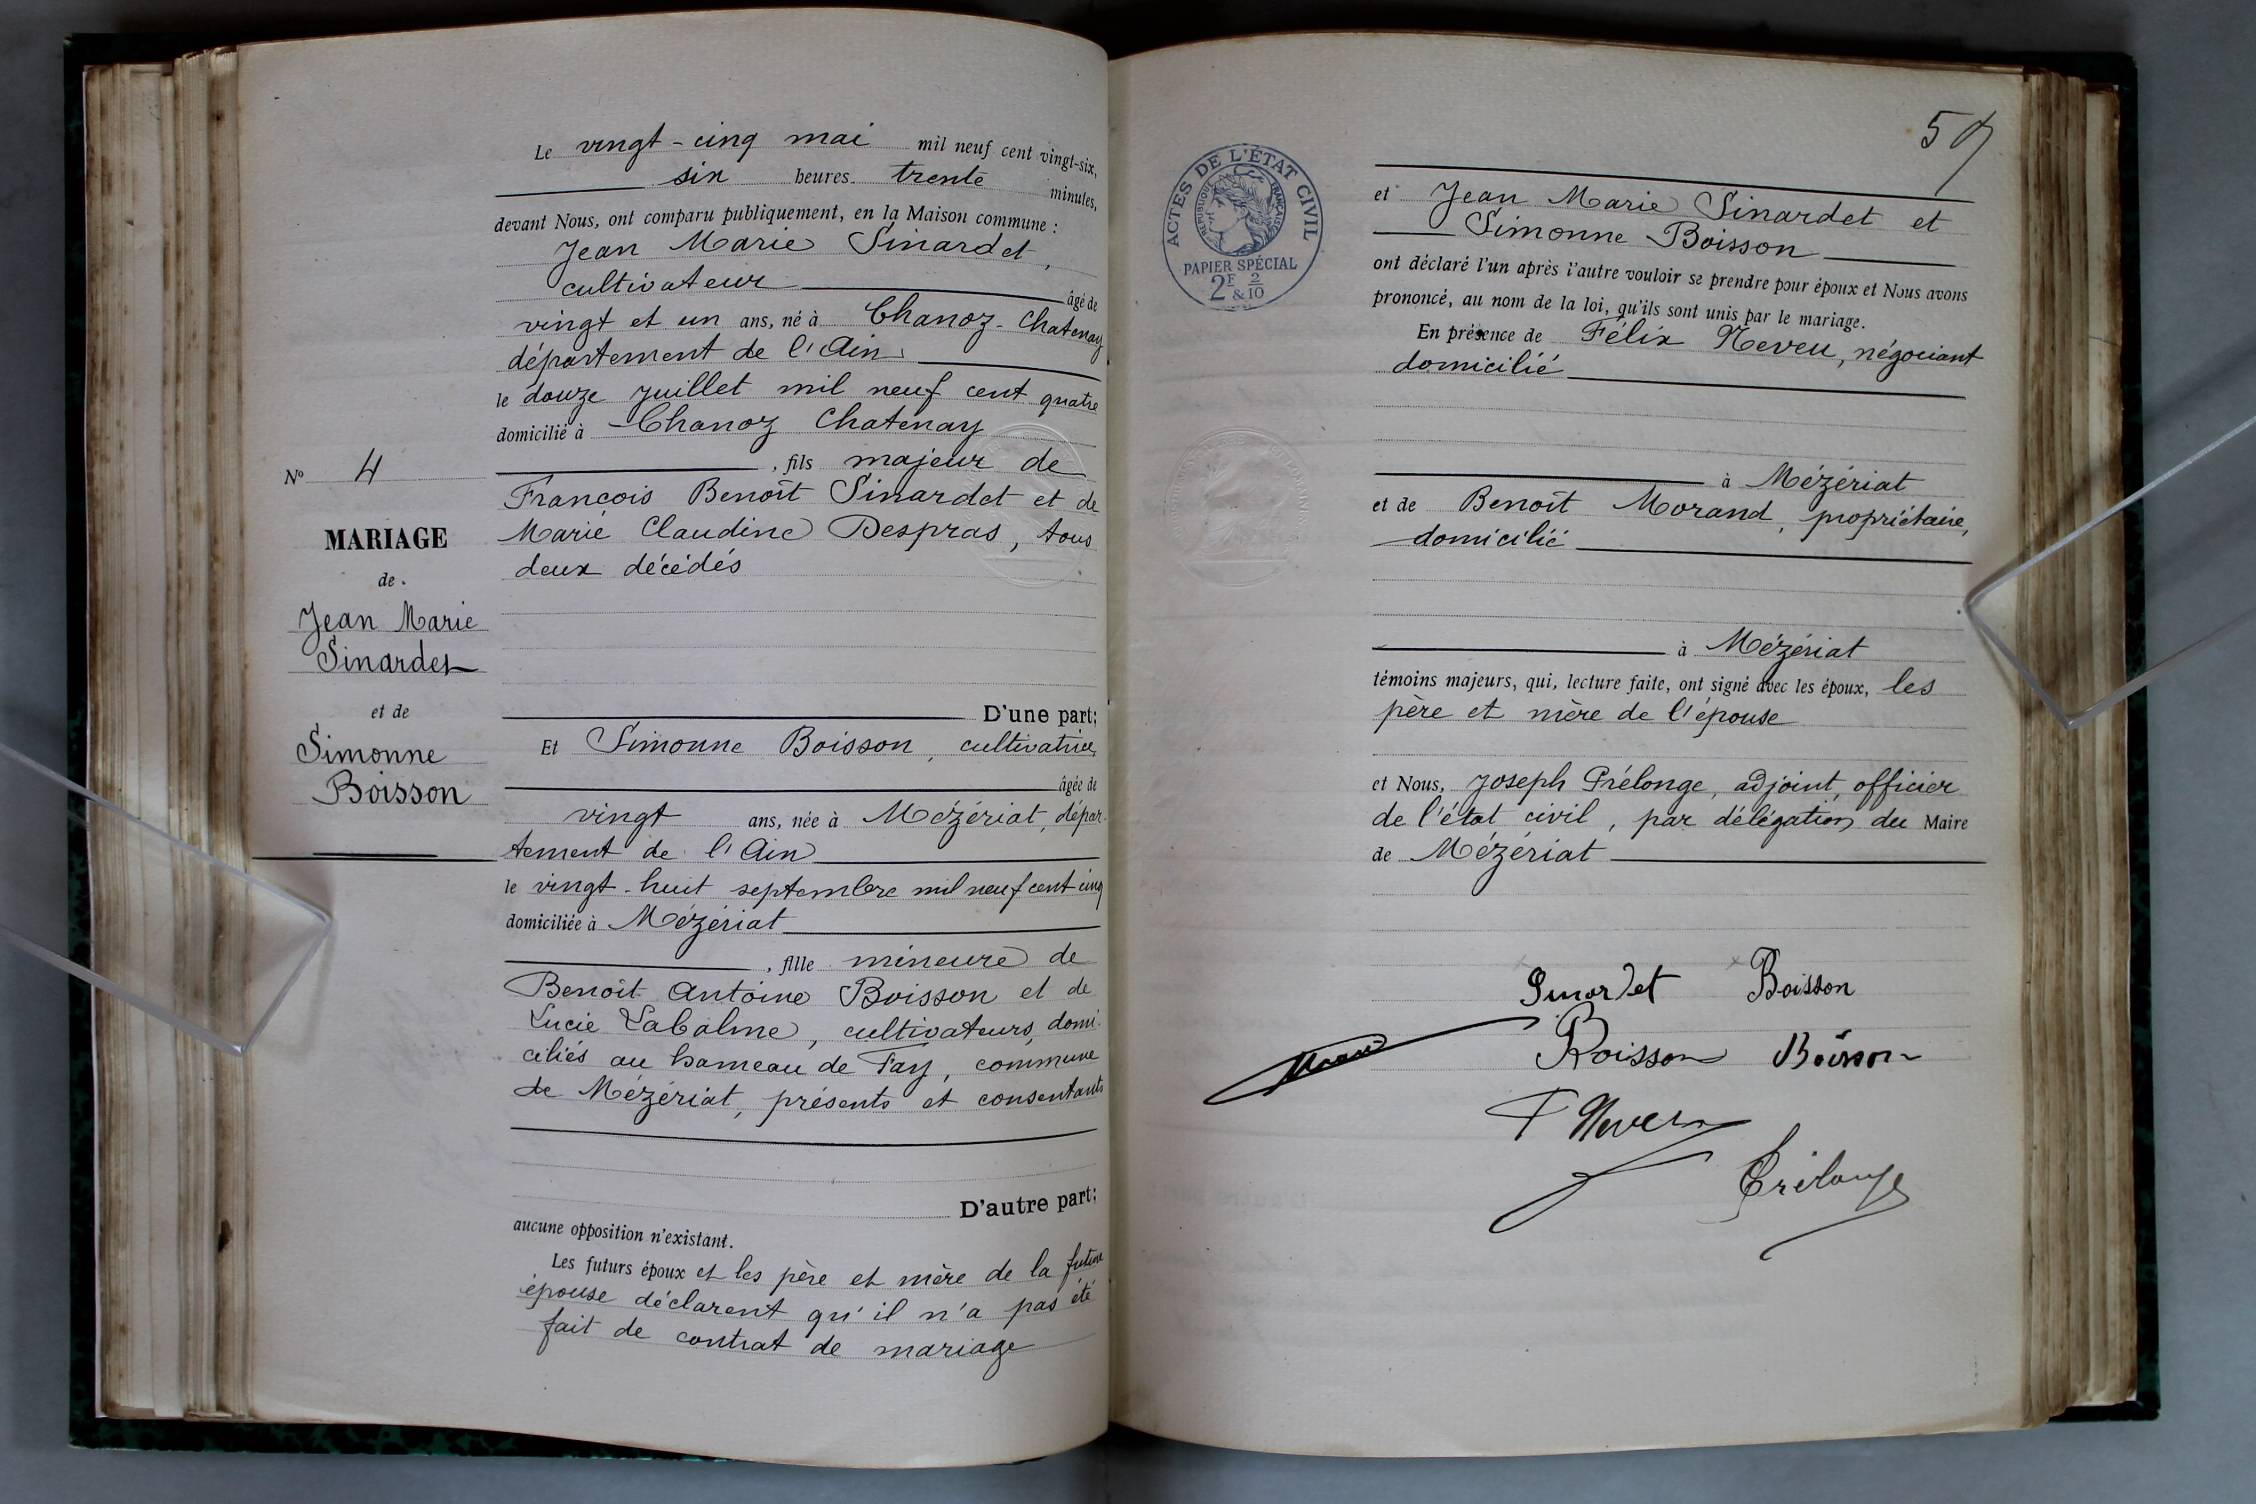 Le vingt-cinq mai mil neuf cent vingt-six,
six heures trente minutes,
devant Nous, ont comparu publiquement, en la Maison commune :
Jean Marie Sinardet,
cultivateur âgé de
vingt et un ans, né à Chanoz-Chatenay
département de l'Ain
le douze juillet mil neuf cent quatre
domicilié à Chanoz Chatenay
, fils majeur de
François Benoît Sinardet et de
Marie Claudine Despras, tous
deux décédés
D'une part;
Nº 4
MARIAGE
de
Jean Marie
Sinardet
et de
Simonne
Boisson
Et Simonne Boisson, cultivatrice,
âgée de
vingt ans, née à Mézériat, dépar-
tement de l'Ain
le vingt-huit septembre mil neuf cent cinq
domiciliée à Mézériat
, fille mineure de
Benoît Antoine Boisson et de
Lucie Labalme, cultivateurs, domi-
ciliés au hameau de Fay, commune
de Mézériat, présents et consentants
D'autre part;
aucune opposition n'existant.
Les futurs époux et les père et mère de la future
épouse déclarent qu'il n'a pas été
fait de contrat de mariage
ACTES DE L'ÉTAT CIVIL
RÉPUBLIQUE FRANÇAISE
PAPIER SPÉCIAL
2F 2
& 10
et Jean Marie Sinardet et
Simonne Boisson
ont déclaré l'un après l'autre vouloir se prendre pour époux et Nous avons
prononcé, au nom de la loi, qu'ils sont unis par le mariage.
En présence de Félix Neveu, négociant
domicilié
à Mézériat
et de Benoît Morand, propriétaire,
domicilié
à Mézériat
témoins majeurs, qui, lecture faite, ont signé avec les époux, les
père et mère de l'épouse
et Nous, Joseph Prélonge, adjoint, officier
de l'état civil, par délégation du Maire
de Mézériat
Sinardet Boisson
Boisson Boisson
F Neveu
Prélonge